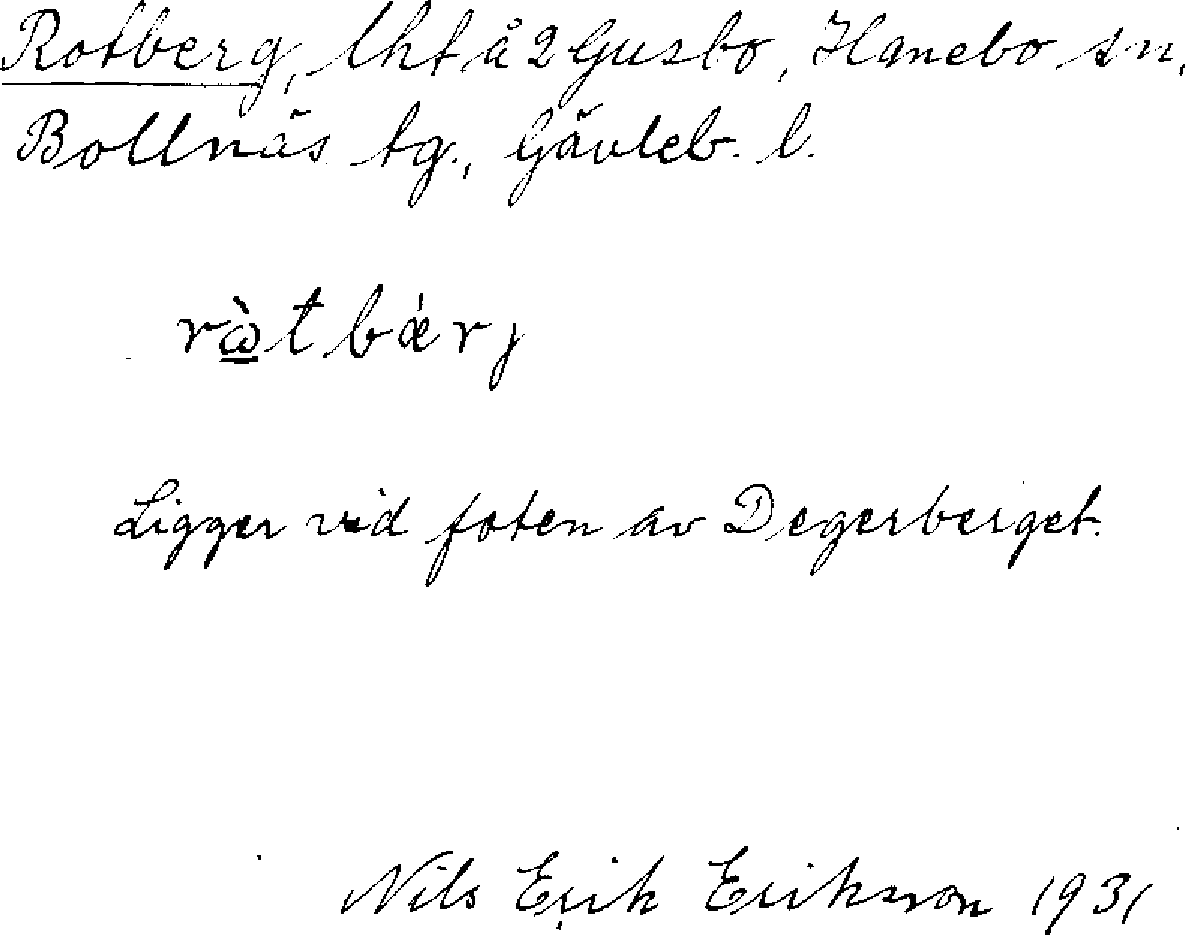 Rotberg, lht å 2 Gusbo, Hanebo sn,
Bollnäs tg., Gävleb. l.
rὼ̲t bǽrj
Ligger vid foten av Degerberget.
Nils Erik Eriksson 1931